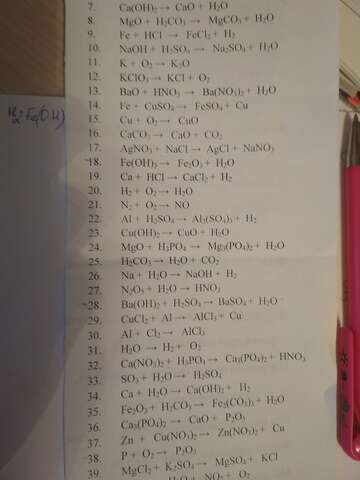 7. Ca(OH)₂ → CaO + H₂O
8. MgO + H₂CO₃ → MgCO₃ + H₂O
9. Fe + HCl → FeCl₂ + H₂
10. NaOH + H₂SO₄ → Na₂SO₄ + H₂O
11. K + O₂ → K₂O
12. KClO₃ → KCl + O₂
13. BaO + HNO₃ → Ba(NO₃)₂ + H₂O
14. Fe + CuSO₄ → FeSO₄ + Cu
15. Cu + O₂ → CuO
16. CaCO₃ → CaO + CO₂
17. AgNO₃ + NaCl → AgCl + NaNO₃
18. Fe(OH)₃ → Fe₂O₃ + H₂O
19. Ca + HCl → CaCl₂ + H₂
20. H₂ + O₂ → H₂O
21. N₂ + O₂ → NO
22. Al + H₂SO₄ → Al₂(SO₄)₃ + H₂
23. Cu(OH)₂ → CuO + H₂O
24. MgO + H₃PO₄ → Mg₃(PO₄)₂ + H₂O
25. H₂CO₃ → H₂O + CO₂
26. Na + H₂O → NaOH + H₂
27. N₂O₅ + H₂O → HNO₃
28. Ba(OH)₂ + H₂SO₄ → BaSO₄ + H₂O
29. CuCl₂ + Al → AlCl₃ + Cu
30. Al + Cl₂ → AlCl₃
31. H₂O → H₂ + O₂
32. Ca(NO₃)₂ + H₃PO₄ → Ca₃(PO₄)₂ + HNO₃
33. SO₃ + H₂O → H₂SO₄
34. Ca + H₂O → Ca(OH)₂ + H₂
35. Fe₂O₃ + H₂CO₃ → Fe₂(CO₃)₃ + H₂O
36. Ca₃(PO₄)₂ → CaO + P₂O₅
37. Zn + Cu(NO₃)₂ → Zn(NO₃)₂ + Cu
38. P + O₂ → P₂O₅
39. MgCl₂ + K₂SO₄ → MgSO₄ + KCl